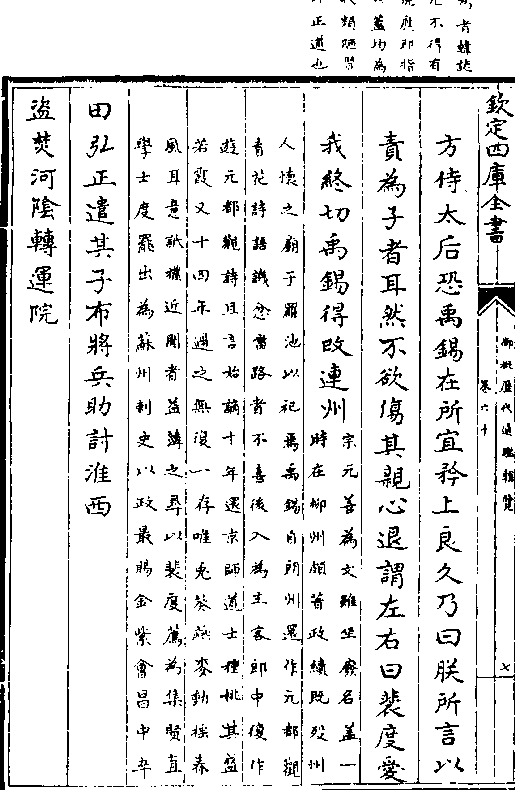 不得有
蓋均為
類陋習
正道也
欽定四庫全書
御批歷代通鑑輯覽
卷六十
七
方侍太后恐禹錫在所宜矜上良久乃曰朕所言以
責為子者耳然不欲傷其親心退謂左右曰裴度愛
我終切禹錫得改連州
宗元善為文雖坐廢名蓋一
時在柳州頗著政績既殁州
人懷之廟于羅池以祀焉禹錫自朗州還作元都觀
看花詩語譏忿當路者不喜後入為主客郎中復作
遊元都觀詩且言始謫十年還京師道士種桃其盛
若霞又十四年過之無復一存唯兔葵燕麥動搖春
風耳意詆權近聞者益薄之尋以裴度薦為集賢直
學士度罷出為蘇州刺史以政最賜金紫會昌中卒
田弘正遣其子布將兵助討淮西
盜焚河陰轉運院